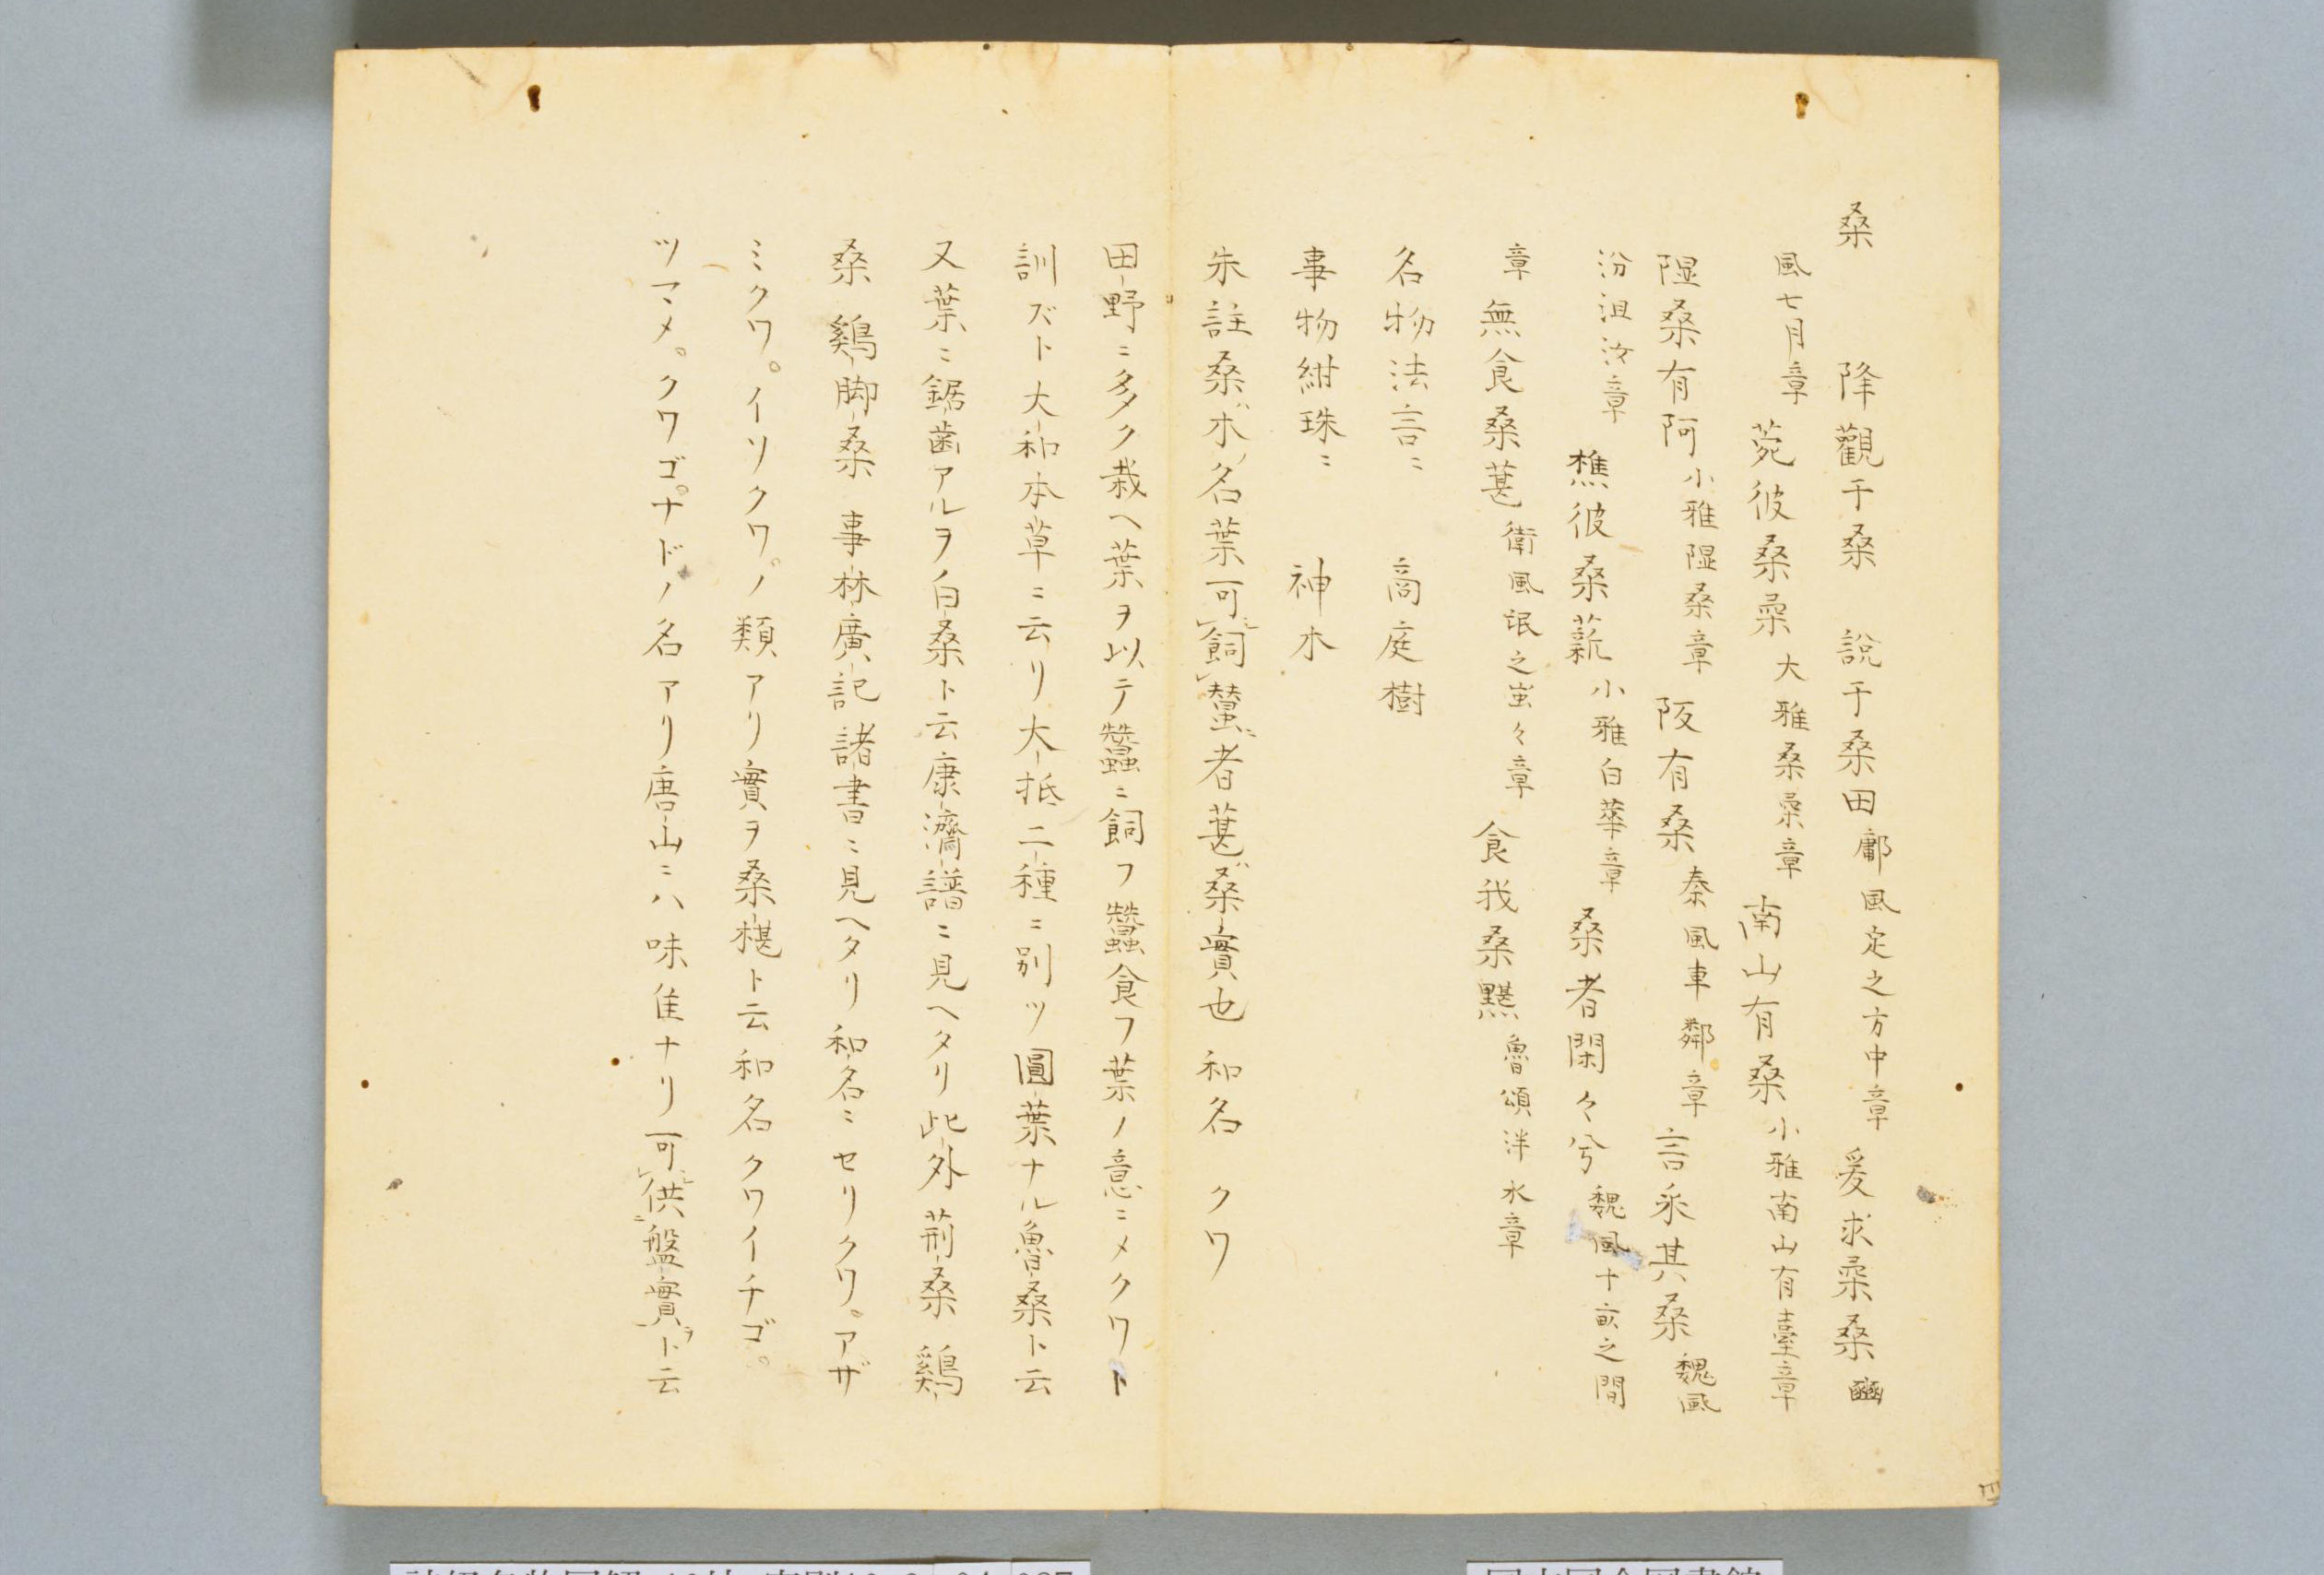 桑　降觀于桑　說于桑田 鄘風定之方中章　爰求柔桑 豳
風七月章　菀彼桑柔 大雅桑柔章　南山有桑 小雅南山有臺章
隰桑有阿 小雅隰桑章　阪有桑 秦風車鄰章　言采其桑 魏風
汾沮洳章　樵彼桑薪 小雅白華章　桑者閑々兮 魏風十畝之間
章　無食桑葚 衛風氓之蚩々章　食我桑黮 魯頌泮水章
名物法言ニ　高庭樹
事物紺珠ニ　神木
朱註桑ハ木ノ名葉可レ飼レ蠶ニ者葚ハ桑實也　和名　クワ
田野ニ多ク栽ヘ葉ヲ以テ蠶ニ飼フ蠶食フ葉ノ意ニメクワト
訓ズト大和本草ニ云リ大抵二種ニ別ツ圓葉ナル魯桑ト云
又葉ニ鋸歯アルヲ白桑ト云康濟譜ニ見ヘタリ此外荊桑　鷄
桑　鷄脚桑　事林廣記諸書ニ見ヘタリ和名ニセリクワ。アザ
ミクワ。イソクワ。ノ類アリ實ヲ桑椹ト云和名クワイチゴ。
ツマメ。クワゴ。ナドノ名アリ唐山ニハ味佳ナリ可レ供ニ盤實ヲト云
四
国立国会図書館